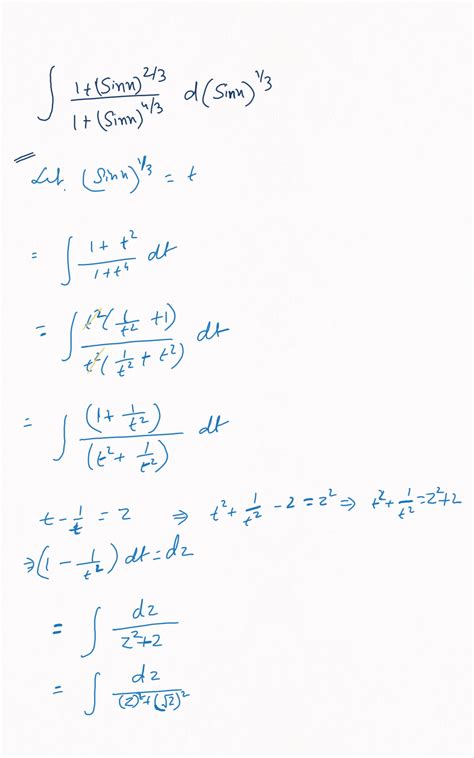 ∫ (1+(Sinx)^2/3)/(1+(Sinx)^4/3) d(Sinx)^1/3
Let. (Sinx)^1/3 = t
= ∫ (1+t^2)/(1+t^4) dt
= ∫ (t^2(1/t^2 +1))/(t^2(1/t^2 + t^2)) dt
= ∫ (1+1/t^2)/(t^2+1/t^2) dt
t-1/t = z ⇒ t^2+1/t^2 -2 = z^2 ⇒ t^2+1/t^2=z^2+2
⇒(1-1/t^2) dt=dz
= ∫ dz/(z^2+2)
= ∫ dz/((z)^2+(√2)^2)